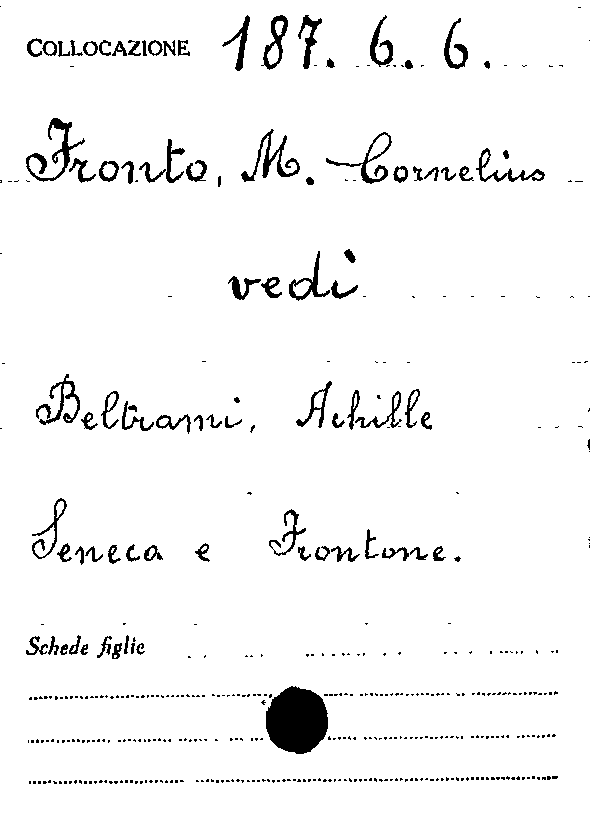 COLLOCAZIONE 187. 6. 6.
Fronto, M. Cornelius
vedi
Beltrami, Achille
Seneca e Frontone.
Schede figlie